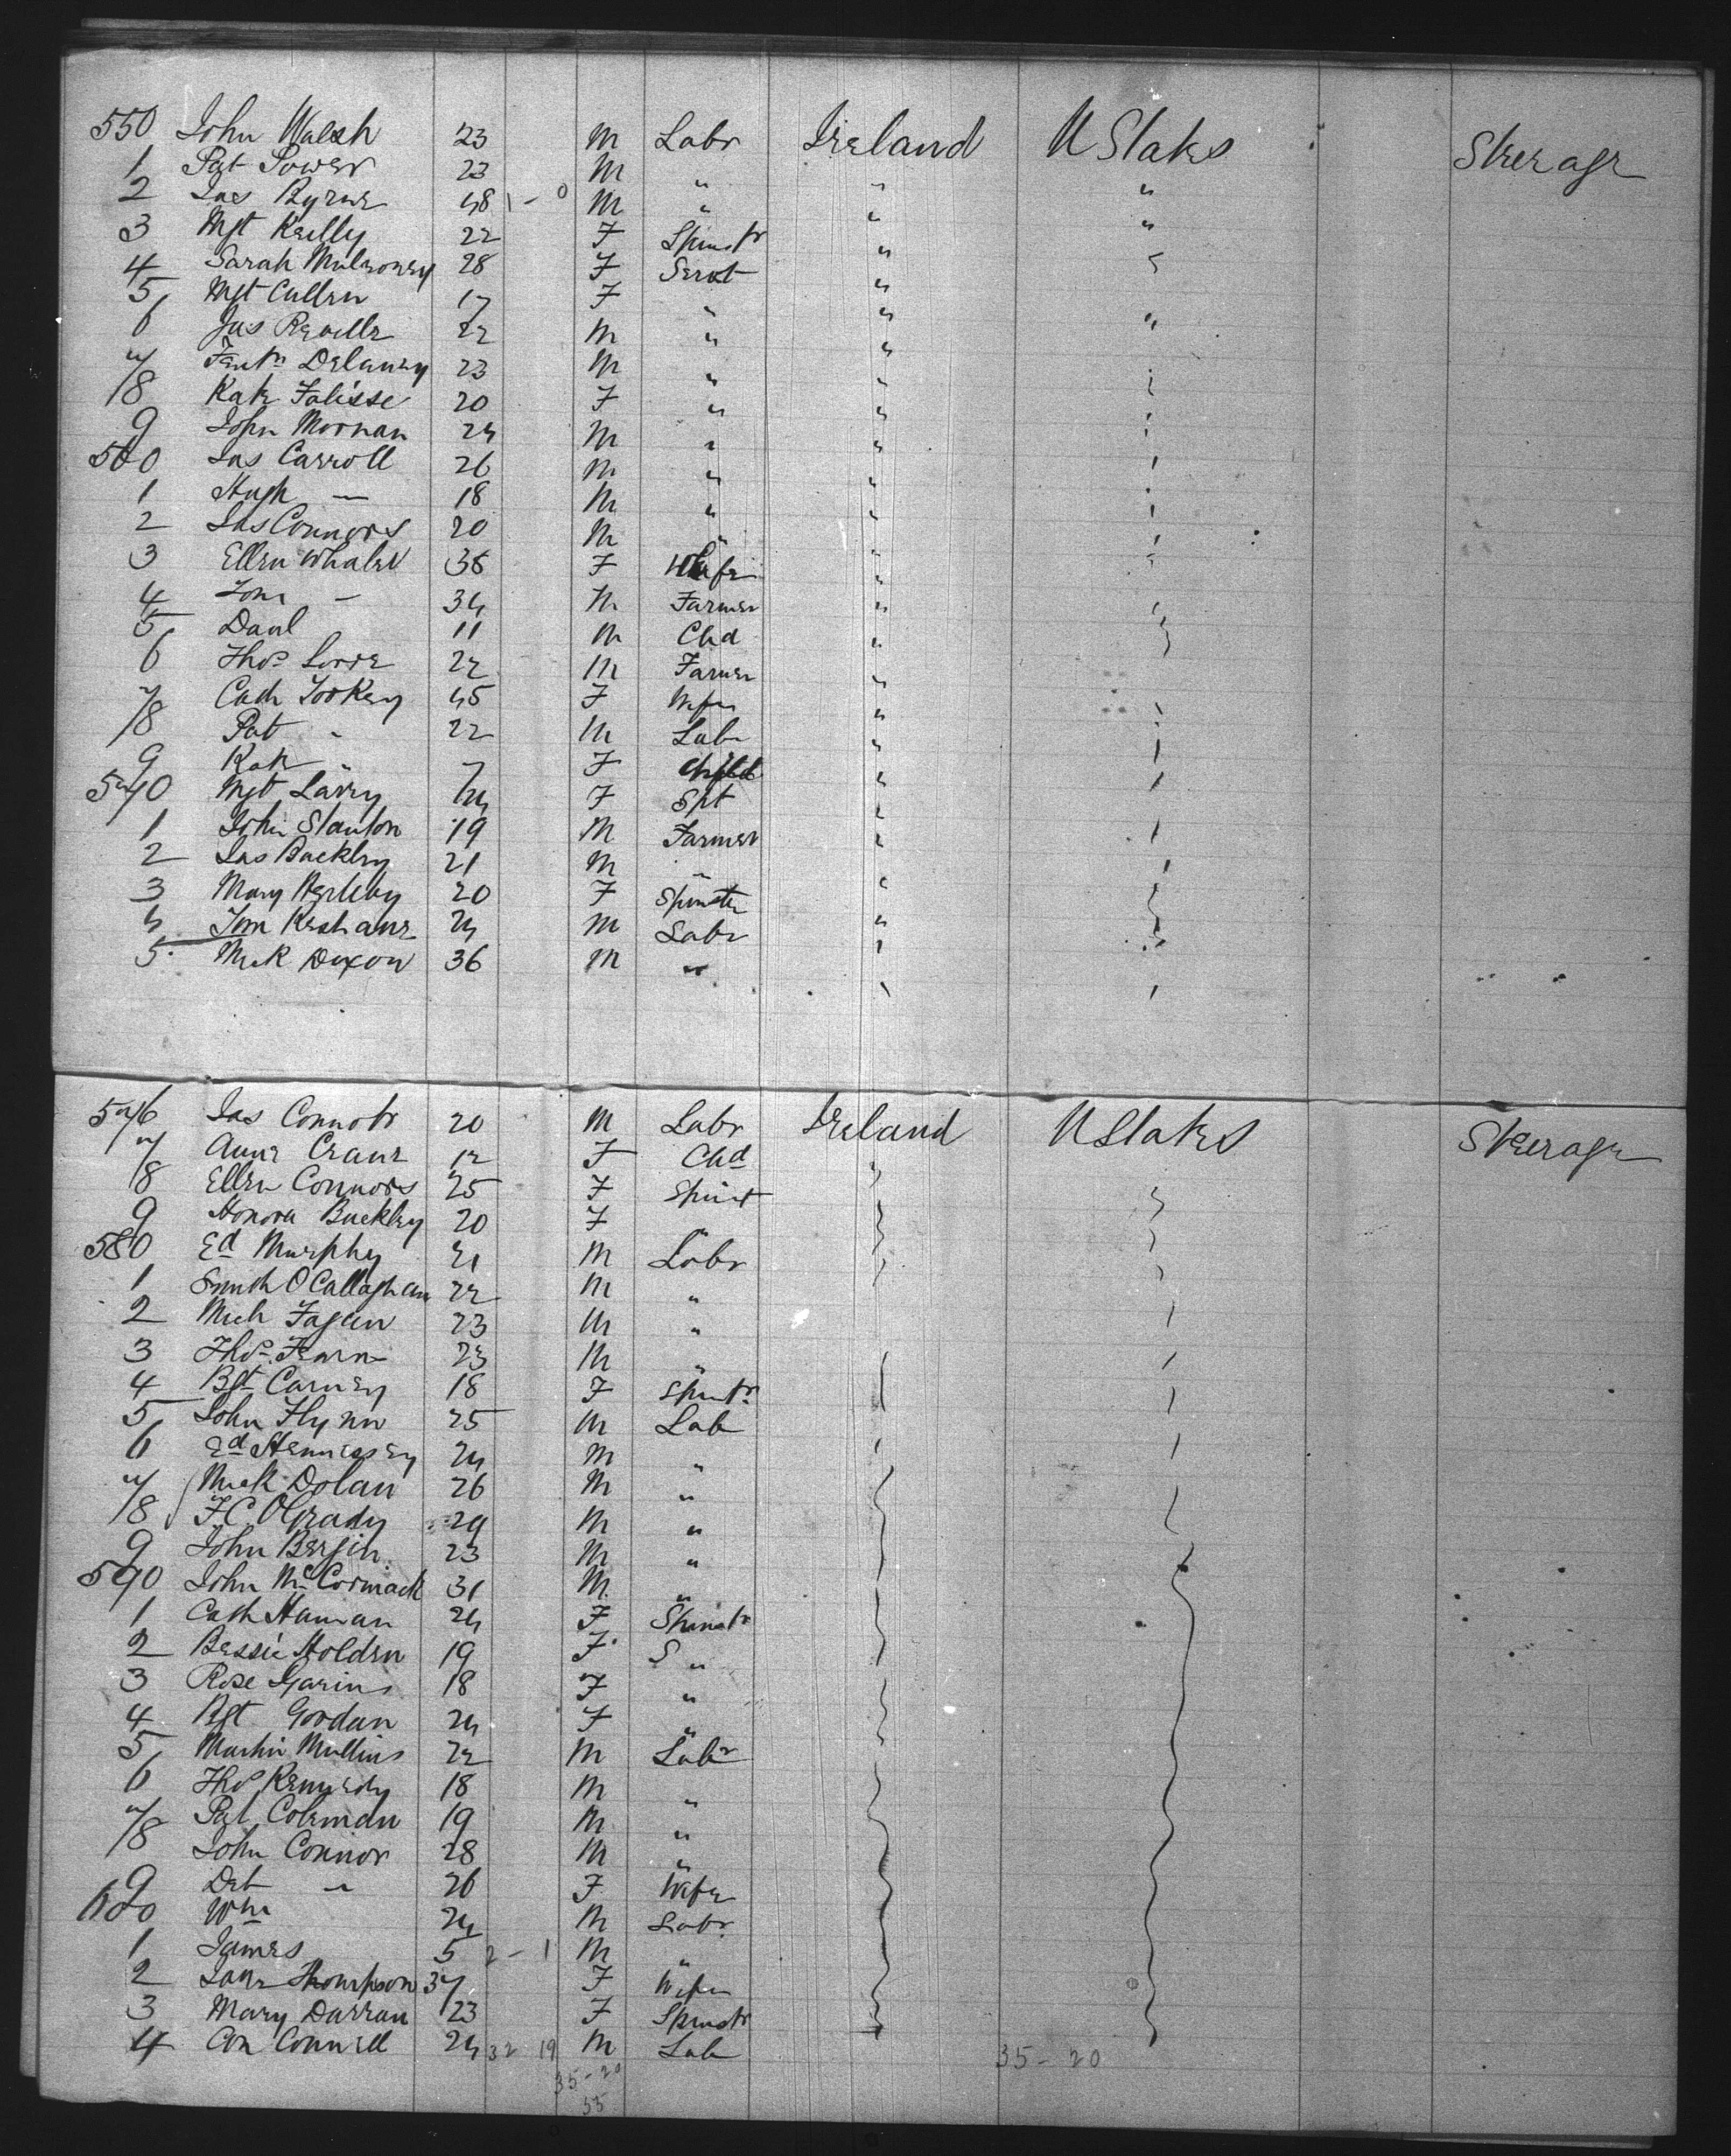 550 John Walsh 23 M Labr Ireland U States Steerage
1 Pat Power 23 M " " "
2 Jas Byrne 48 1 - 0 M " " "
3 Mgt Keilly 22 F Spinstr "
4 Sarah Mulroney 28 F Servt "
5 Mgt Cullen 17 F " " "
6 Jas Reville 22 M " "
7 Delaney 23 M " "
8 Kate 20 F " "
9 John Moonan 24 M " "
560 Jas Carroll 26 M " "
1 Hugh — 18 M " "
2 Jas Connors 20 M " "
3 Ellen Whaler 38 F Wife "
4 Tom - 34 M Farmer "
5 Danl 11 M Chd "
6 Thos 22 M Farmer "
7 Cath Tookey 45 F Wife "
8 Pat " 22 M Labr "
9 Kate " 7 F Child "
570 Mgt Larry F Spt "
1 John Stanton 19 M Farmer "
2 Jas Buckley 21 M "
3 Mary 20 F Spinster "
4 Tom 24 M Labr "
5 Mick Dixon 36 M "
576 Jas Connotr 20 M Labr Ireland U States Steerage
7 Anne Crane 12 F Chd
8 Ellen Connors 25 F Spinst
9 Honora Buckley 20 F "
580 Ed Murphy 21 M Labr
1 Smith O Callaghan 22 M "
2 Mich Fagan 23 M "
3 Thos 23 M "
4 Bgt Carney 18 F Spinstr
5 John Flynn 25 M Lab
6 Ed Hennessey 24 M "
7 Mick Dolan 26 M "
8 F.C. OGrady 29 M "
9 John Bergin 23 M "
590 John McCormack 31 M "
1 Cath Hannan 24 F Spinstr
2 Bessie Holden 19 F S "
3 Rose 18 F "
4 Bgt Gordan 24 F "
5 Martin Mullins 22 M Labr
6 Thos Kennedy 18 M "
7 Pat Coleman 19 M "
8 John Connor 28 M "
9 " 26 F Wife
600 Wm 24 M Labr
1 James 5 2 - 1 M "
2 Jane Thompson 37 F Wife
3 Mary Darran 23 F Spinstr
4 Con Connell 24 32 19 M Lab
35 - 20 35 - 20
55